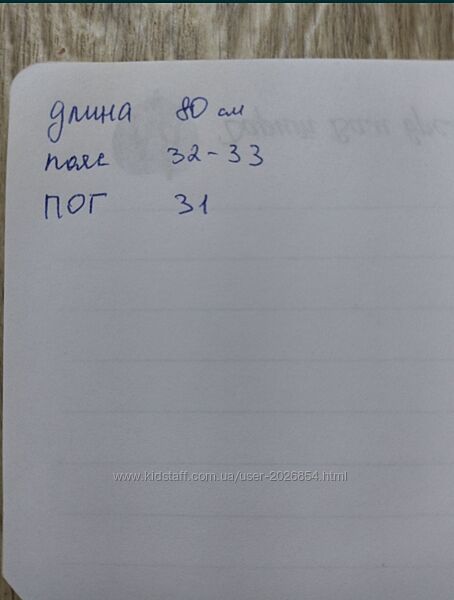 длина 80 см
пояс 32-33
ПОГ 31
www.kidstaff.com.ua/user-2026854.html